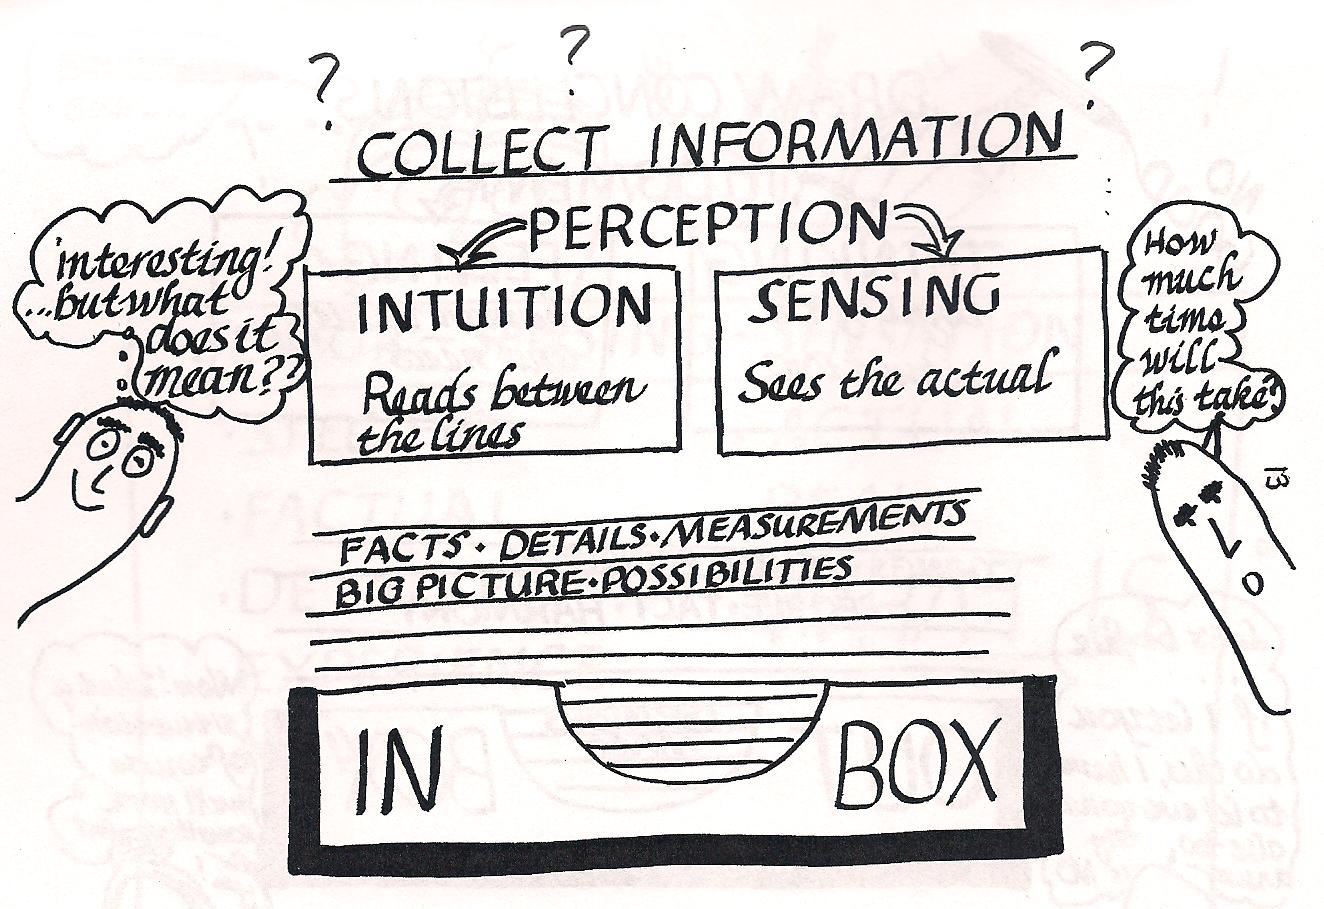 ? ? ?
COLLECT INFORMATION
PERCEPTION
interesting!
...but what
does it
mean??
INTUITION
Reads between
the lines
SENSING
Sees the actual
How
much
time
will
this take?
13
FACTS · DETAILS · MEASUREMENTS
BIG PICTURE · POSSIBILITIES
IN BOX